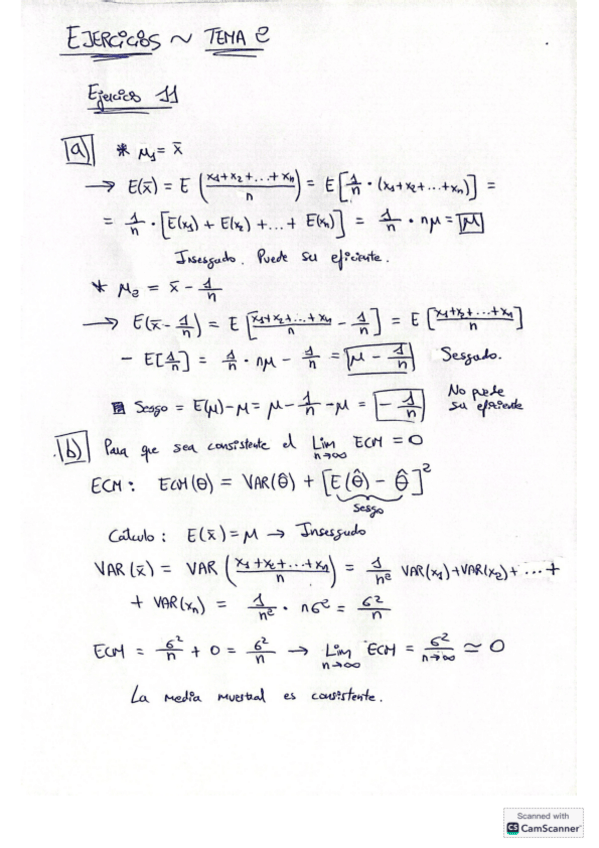 EJERCICIOS ~ TEMA 2
Ejercicio 11
a) * μ₁ = x̄
→ E(x̄) = E (x₁+x₂+...+xₙ / n) = E [1/n · (x₁+x₂+...+xₙ)] =
= 1/n · [E(x₁) + E(x₂) + ... + E(xₙ)] = 1/n · nμ = μ
Insesgado. Puede ser eficiente.
* μ₂ = x̄ - 1/n
→ E(x̄ - 1/n) = E [x₁+x₂+...+xₙ / n - 1/n] = E [x₁+x₂+...+xₙ / n]
- E[1/n] = 1/n · nμ - 1/n = μ - 1/n Sesgado.
Sesgo = E(μ) - μ = μ - 1/n - μ = - 1/n No puede
ser eficiente
b) Para que sea consistente el Lim n→∞ ECM = 0
ECM: ECM(θ) = VAR(θ̂) + [E(θ̂) - θ̂]²
Sesgo
Cálculo: E(x̄) = μ → Insesgado
VAR(x̄) = VAR (x₁+x₂+...+xₙ / n) = 1/n² VAR(x₁)+VAR(x₂)+ ... +
+ VAR(xₙ) = 1/n² · nσ² = σ²/n
ECM = σ²/n + 0 = σ²/n → Lim n→∞ ECM = σ²/n→∞ ≃ 0
La media muestral es consistente.
Scanned with
CS CamScanner